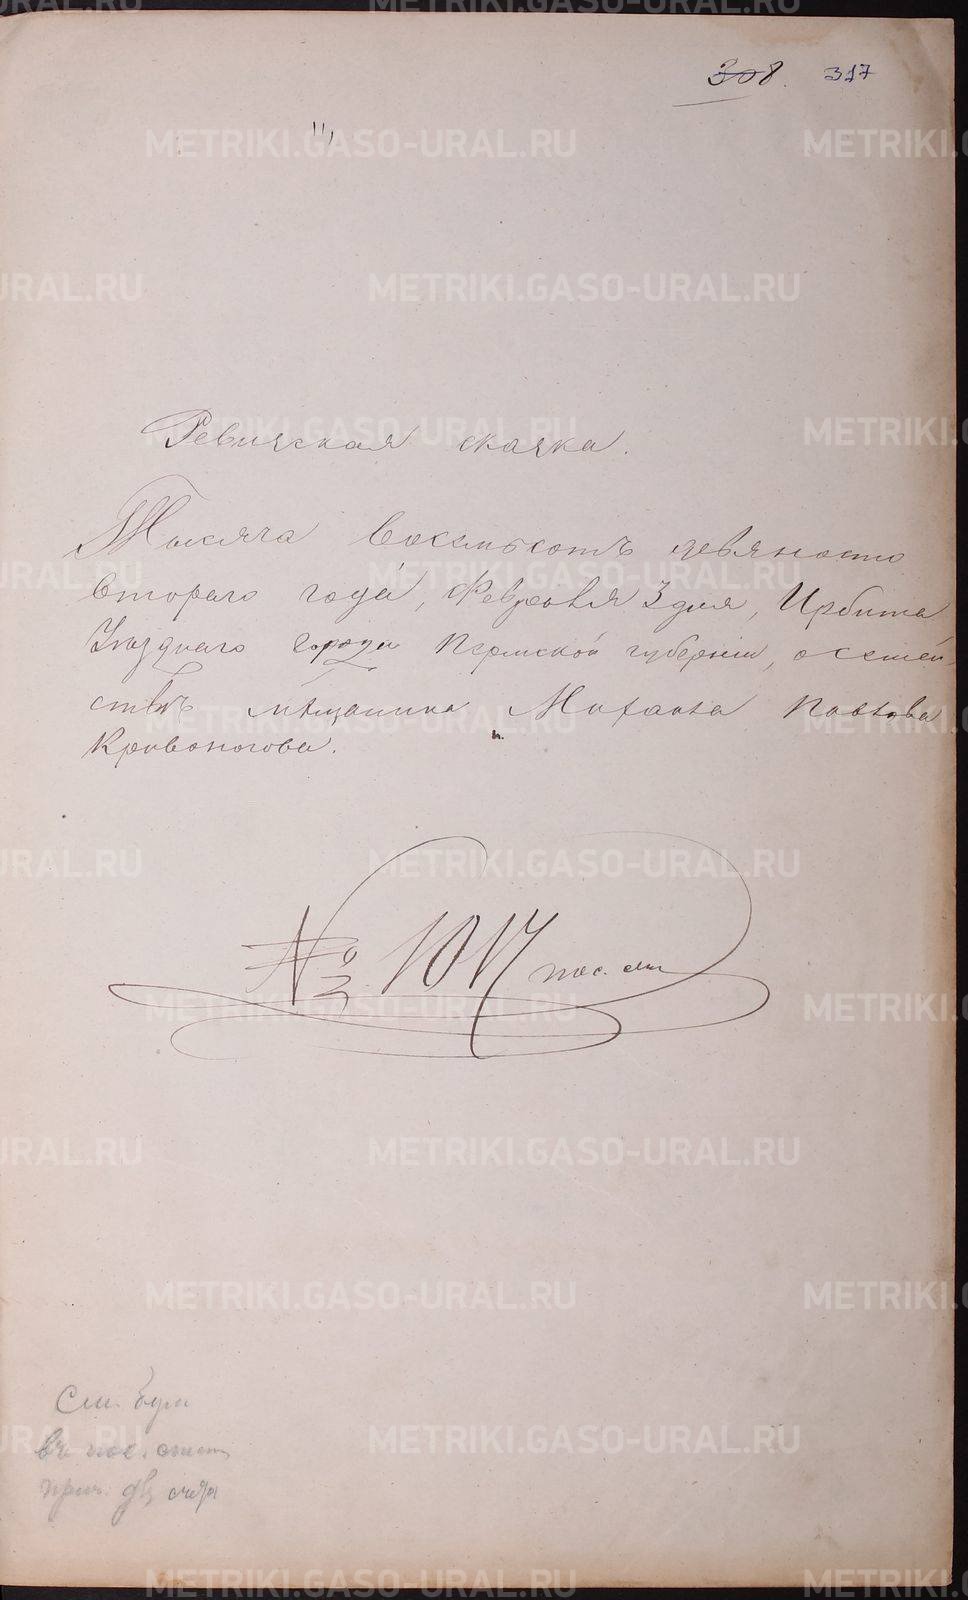 308. 317
Ревизская сказка.
Тысяча восемьсотъ девяносто
втораго года, Февраля 3 дня, Ирбита
Уѣзднаго города Пермской губерніи, о семей-
ствѣ мѣщанина Михаила Павлова
Кривоногова.
№ 1017 пос. сем
См. бум
въ пос.
METRIKI.GASO-URAL.RU